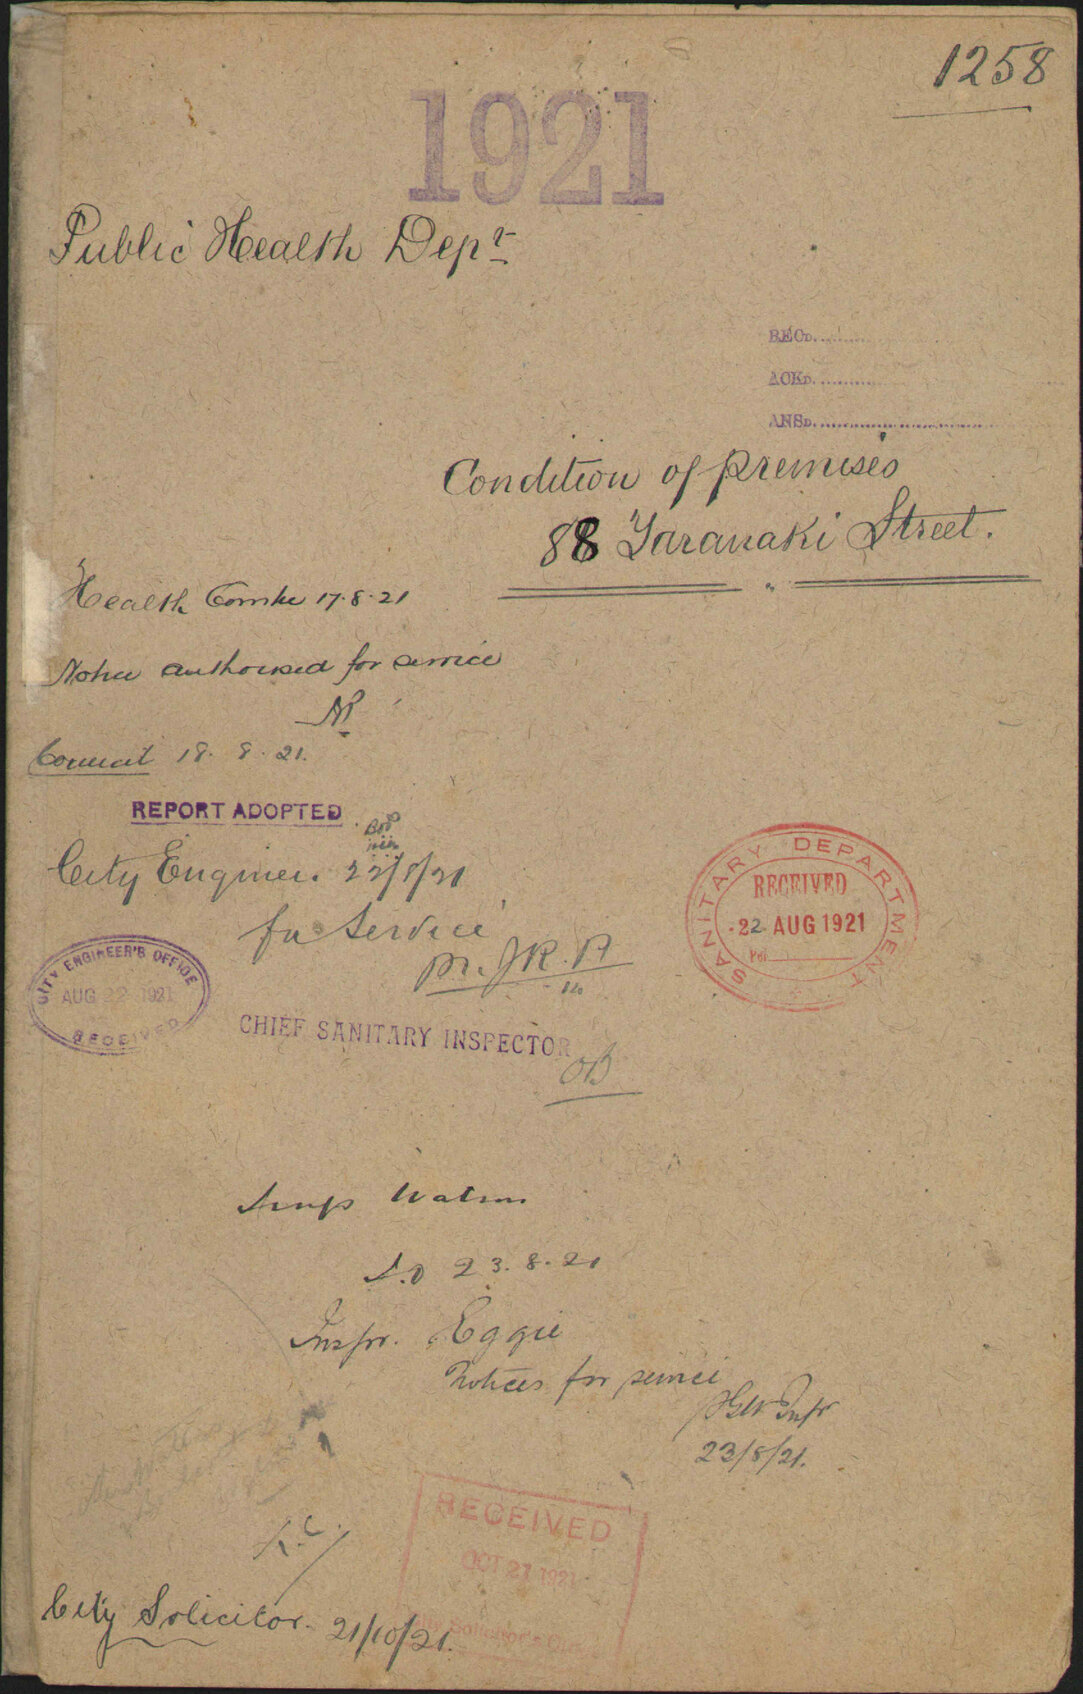 1258
1921
Public Health Dept
RECD.
ACKD.
ANSD.
Condition of premises
88 Taranaki Street.
Health Comtee 17.8.21
Notice authorised for service
Council 18.8.21.
REPORT ADOPTED
City Engineer. 22/8/21
for Service
CITY ENGINEER'S OFFICE
AUG 22 1921
RECEIVED
SANITARY DEPARTMENT
RECEIVED
22 AUG 1921
Per
CHIEF SANITARY INSPECTOR
Watson
23.8.21
Inspr. Eggie
Notices for service
23/8/21.
RECEIVED
OCT 21 1921
City Solicitor's Office
City Solicitor. 21/10/21.